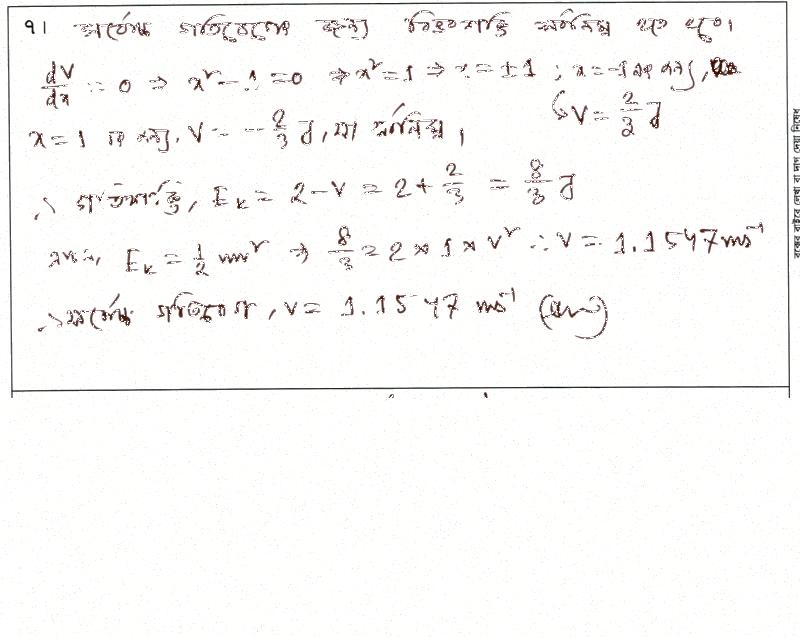 ৭। সর্বোচ্চ গতিবেগের জন্য বিভবশক্তি সর্বনিম্ন হতে হবে।
dV/dx = 0 ⇒ x² - 1 = 0 ⇒ x² = 1 ⇒ x = ±1 ; x = -1 এর জন্য,
↳ V = 2/3 J
x = 1 এর জন্য, V = -2/3 J, যা সর্বনিম্ন।
∴ গতিশক্তি, E_k = 2 - V = 2 + 2/3 = 8/3 J
E_k = 1/2 mv² ⇒ 8/3 = 2 × 1 × v² ∴ v = 1.1547 ms⁻¹
∴ সর্বোচ্চ গতিবেগ, v = 1.1547 ms⁻¹ (Ans)
বক্সের বাইরে লেখা বা দাগ দেয়া নিষেধ